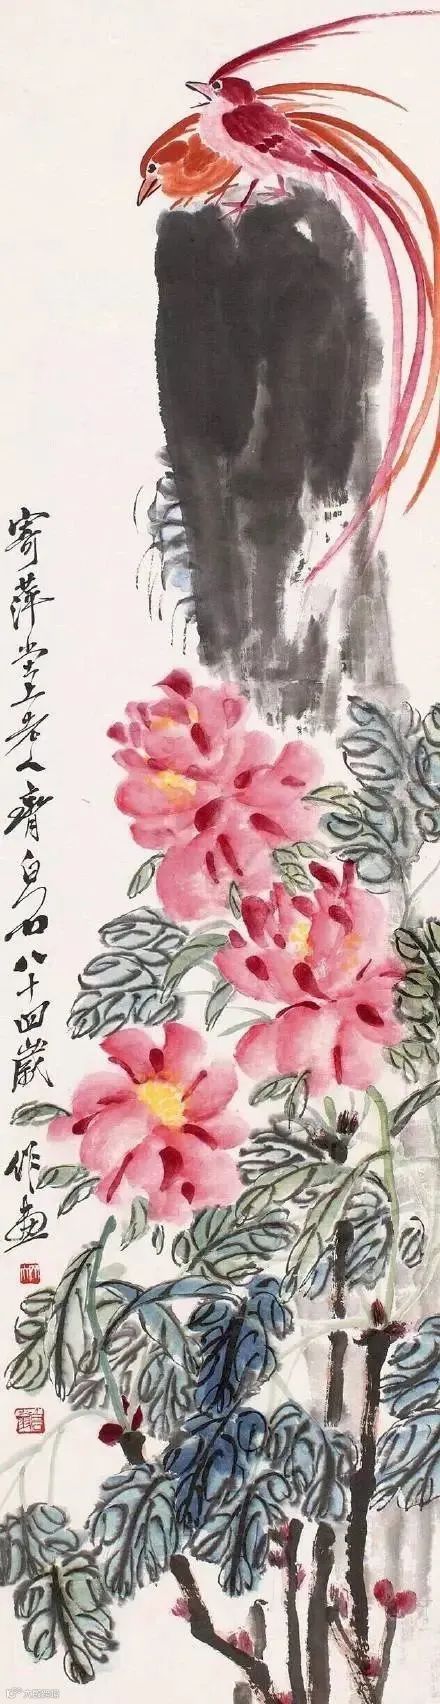 寄萍堂上老人齊白石八十四歲作畫